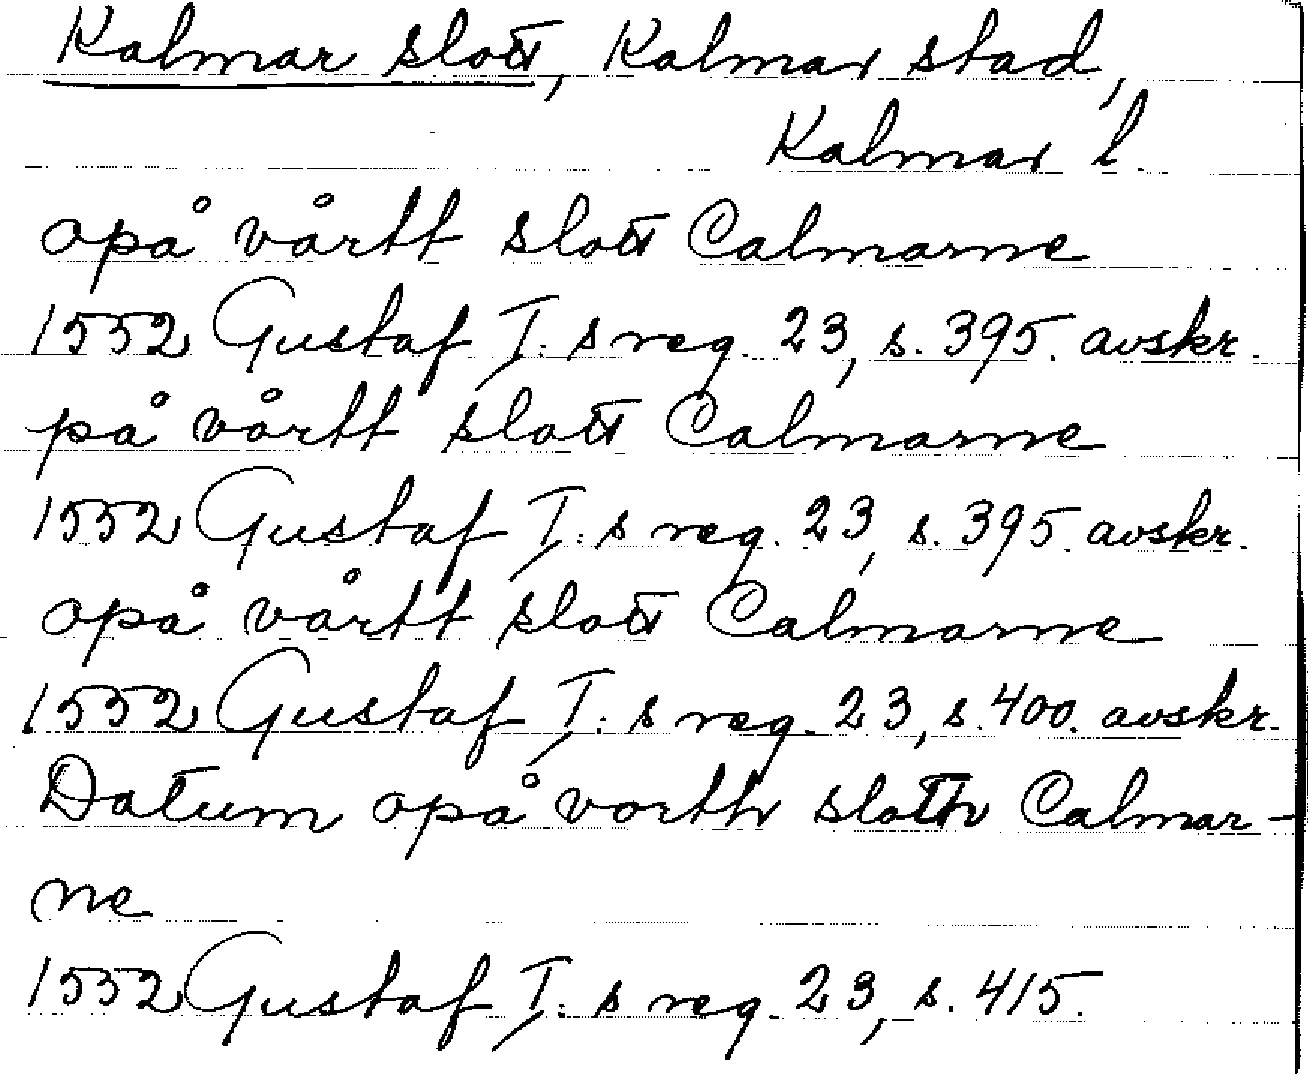 Kalmar slott, Kalmar stad,
Kalmar l.
opå vårtt slott Calmarne
1552 Gustaf I:s reg. 23, s. 395. avskr.
på vårtt slott Calmarne
1552 Gustaf I:s reg. 23, s. 395. avskr.
opå vårtt slott Calmarne
1552 Gustaf I:s reg. 23, s. 400. avskr.
Datum opå vortth slotth Calmar-
ne
1552 Gustaf I:s reg. 23, s. 415.